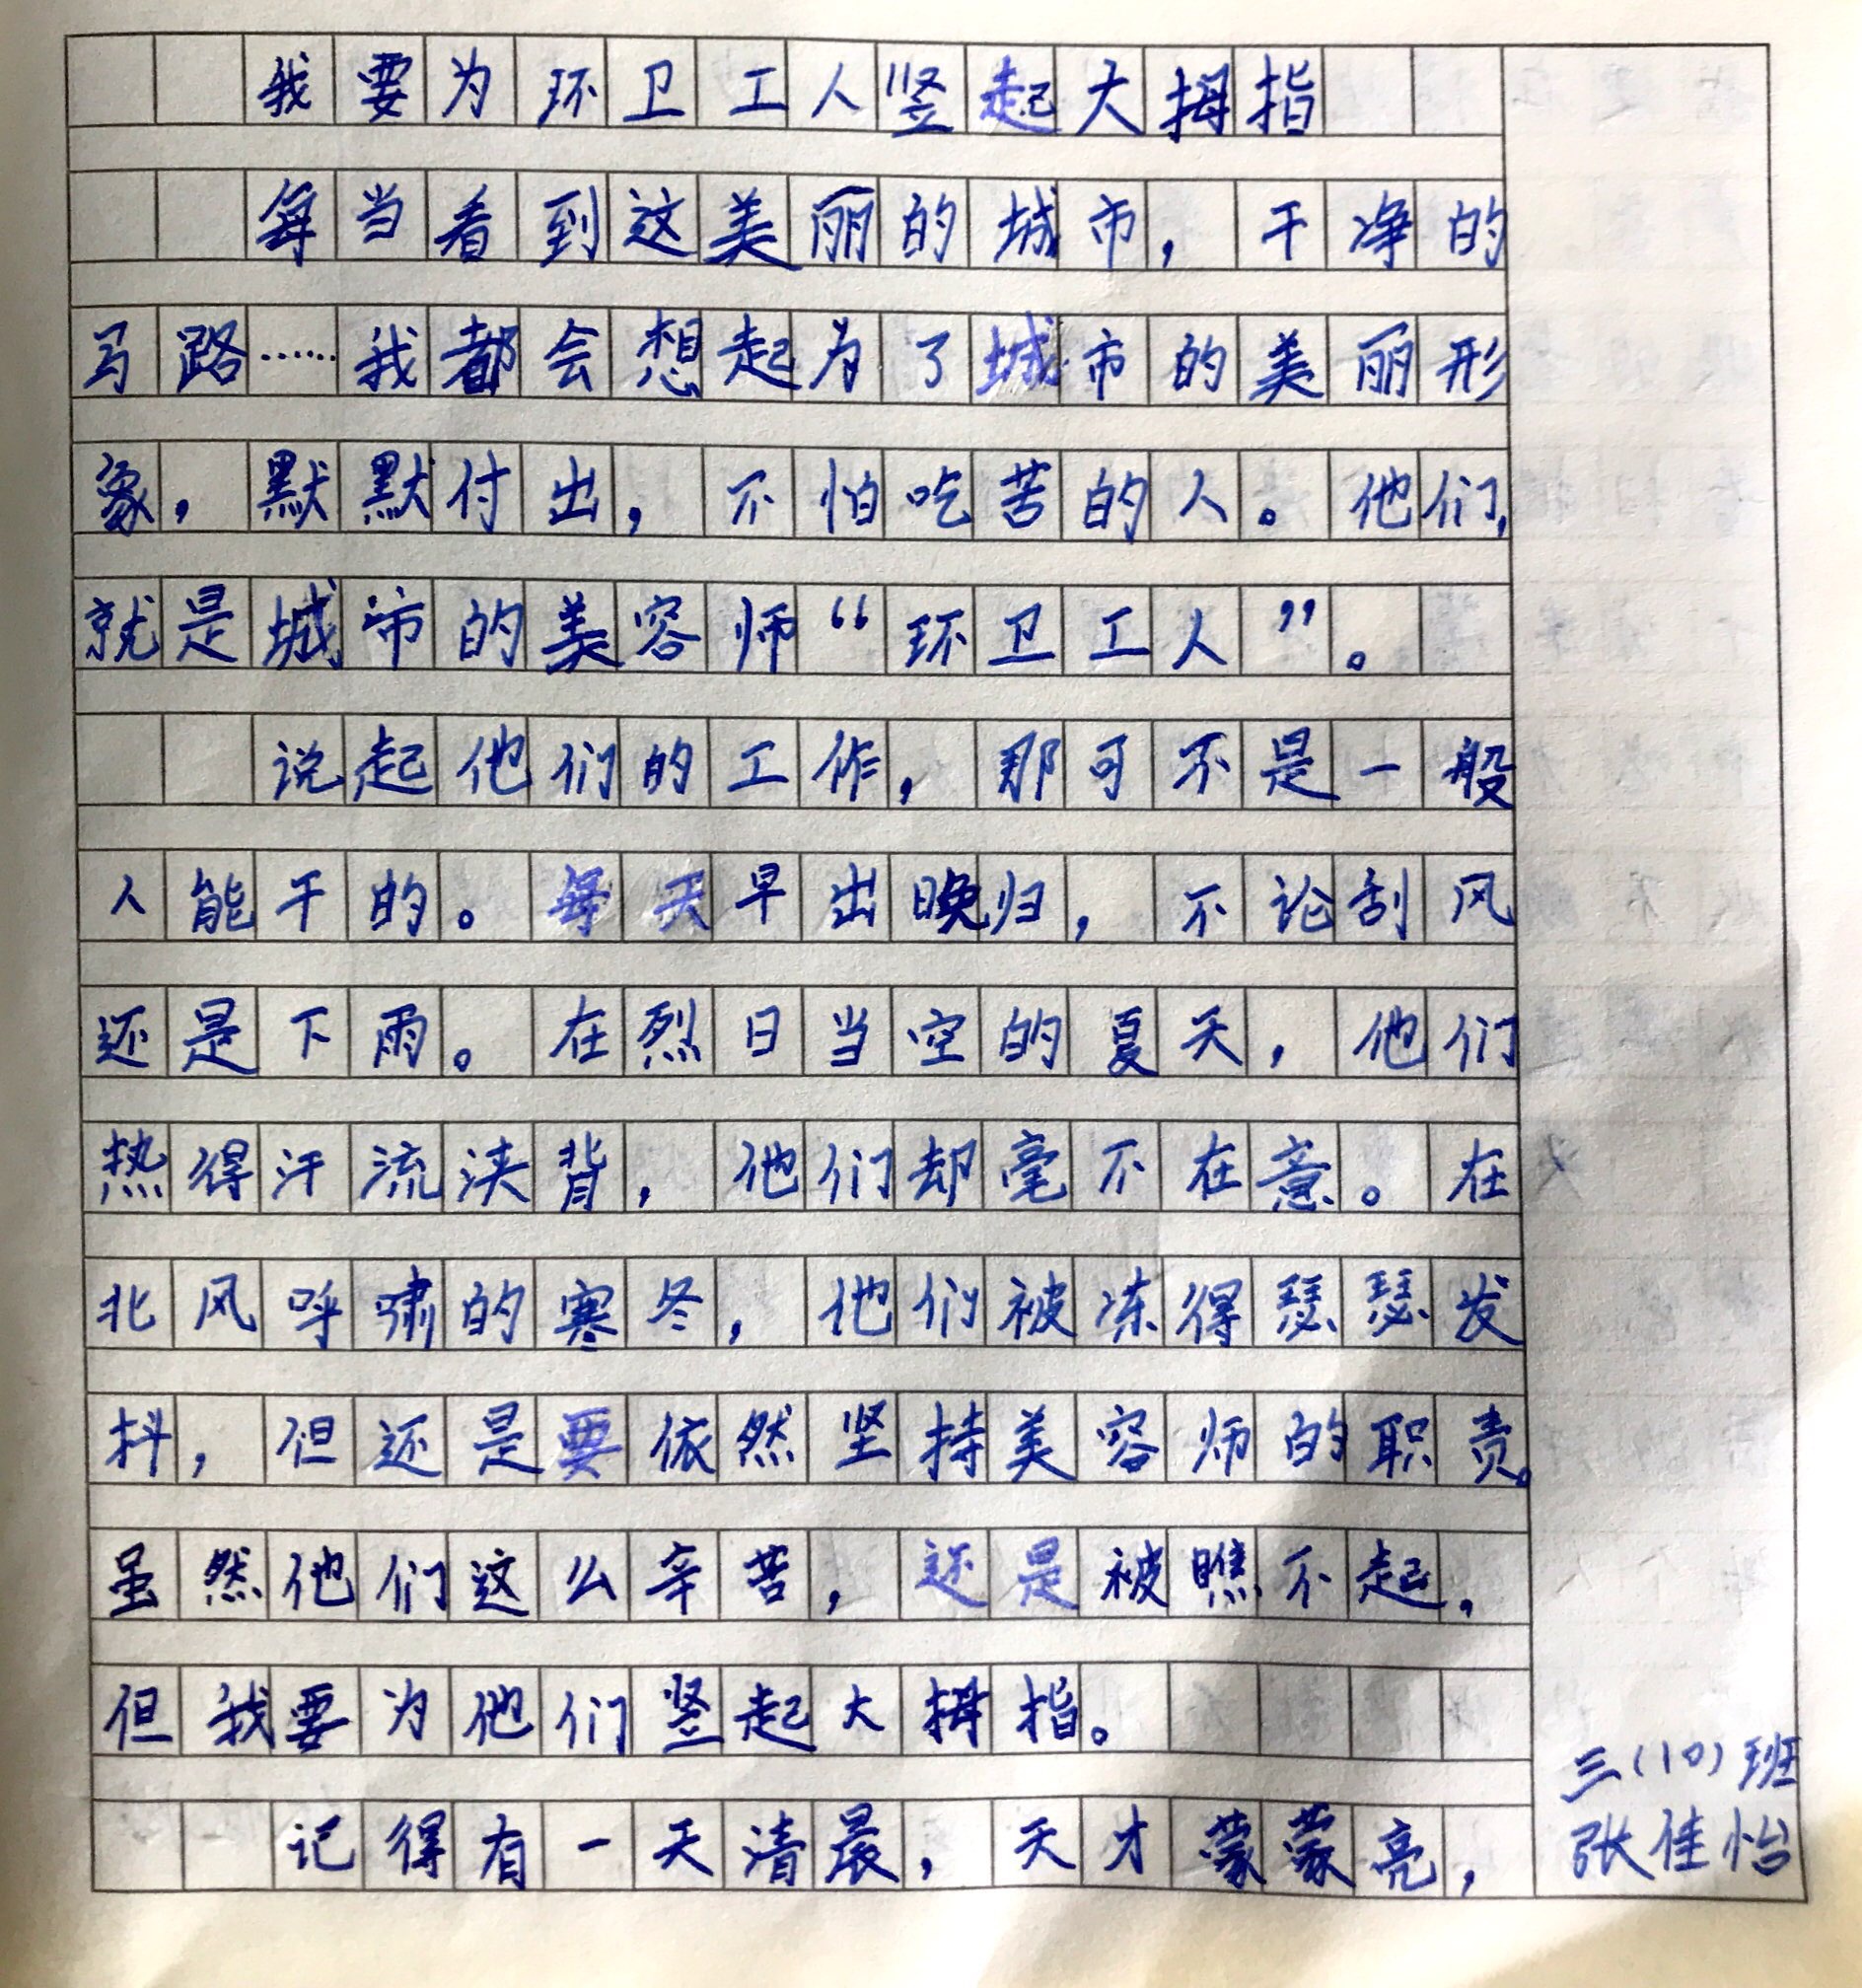 我要为环卫工人竖起大拇指
每当看到这美丽的城市，干净的
马路……我都会想起为了城市的美丽形
象，默默付出，不怕吃苦的人。他们，
就是城市的美容师“环卫工人”。
说起他们的工作，那可不是一般
人能干的。每天早出晚归，不论刮风
还是下雨。在烈日当空的夏天，他们
热得汗流浃背，他们却毫不在意。在
北风呼啸的寒冬，他们被冻得瑟瑟发
抖，但还是要依然坚持美容师的职责。
虽然他们这么辛苦，还是被瞧不起，
但我要为他们竖起大拇指。
记得有一天清晨，天才蒙蒙亮，
三(10)班
张佳怡